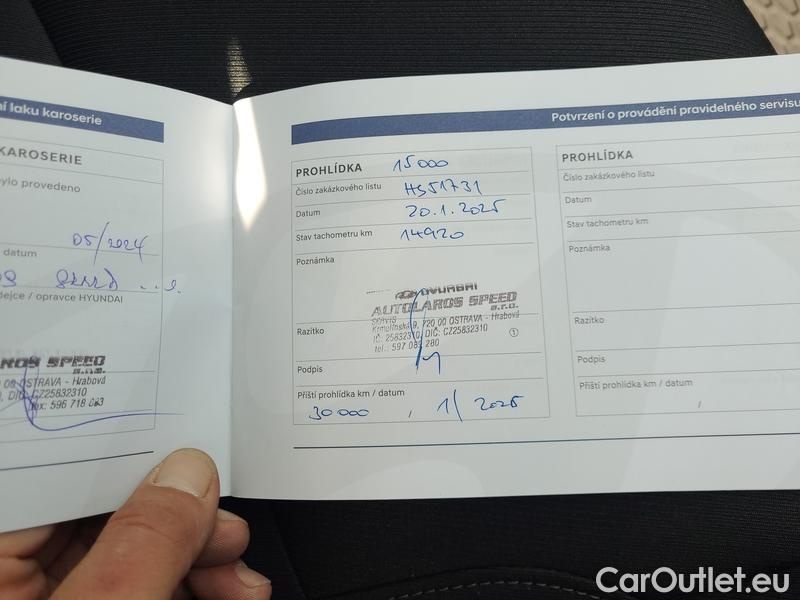 ní laku karoserie
KAROSERIE
bylo provedeno
datum 05/2024
dejce / opravce HYUNDAI
ROS SPEED
s.r.o.
00 OSTRAVA - Hrabová
DIČ: CZ25832310
fax: 596 718 063
Potvrzení o provádění pravidelného servisu
PROHLÍDKA 15 000
Číslo zakázkového listu HS51731
Datum 20.1.2025
Stav tachometru km 14920
Poznámka
HYUNDAI
AUTOLAROS SPEED
s.r.o.
SERVIS
Krmelínská 9, 720 00 OSTRAVA - Hrabová
IČ: 25832310, DIČ: CZ25832310
tel.: 597 085 280 1
Razítko
Podpis
Příští prohlídka km / datum
30 000 / 1/2026
PROHLÍDKA
Číslo zakázkového listu
Datum
Stav tachometru km
Poznámka
Razítko
Podpis
Příští prohlídka km / datum
/
CarOutlet.eu